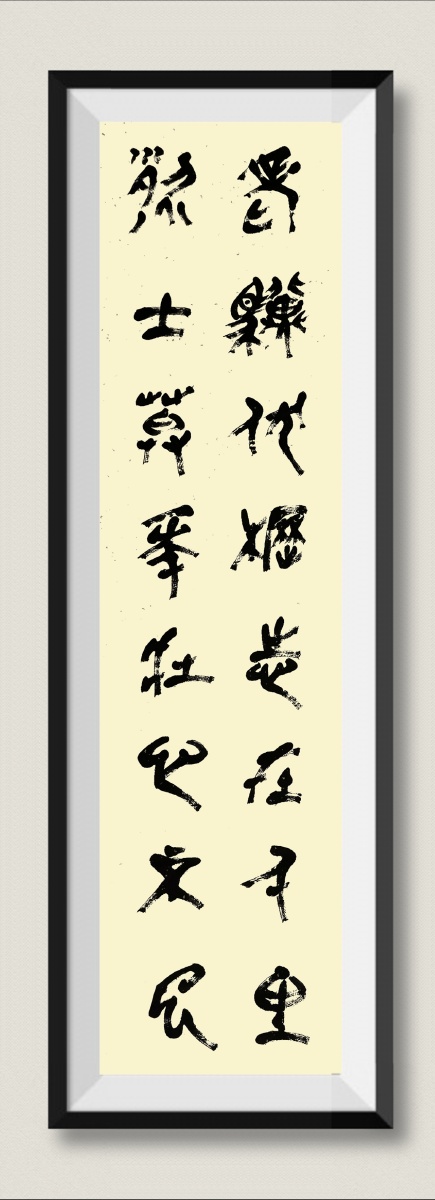 老驥伏櫪志在千里
烈士暮年壯心不已